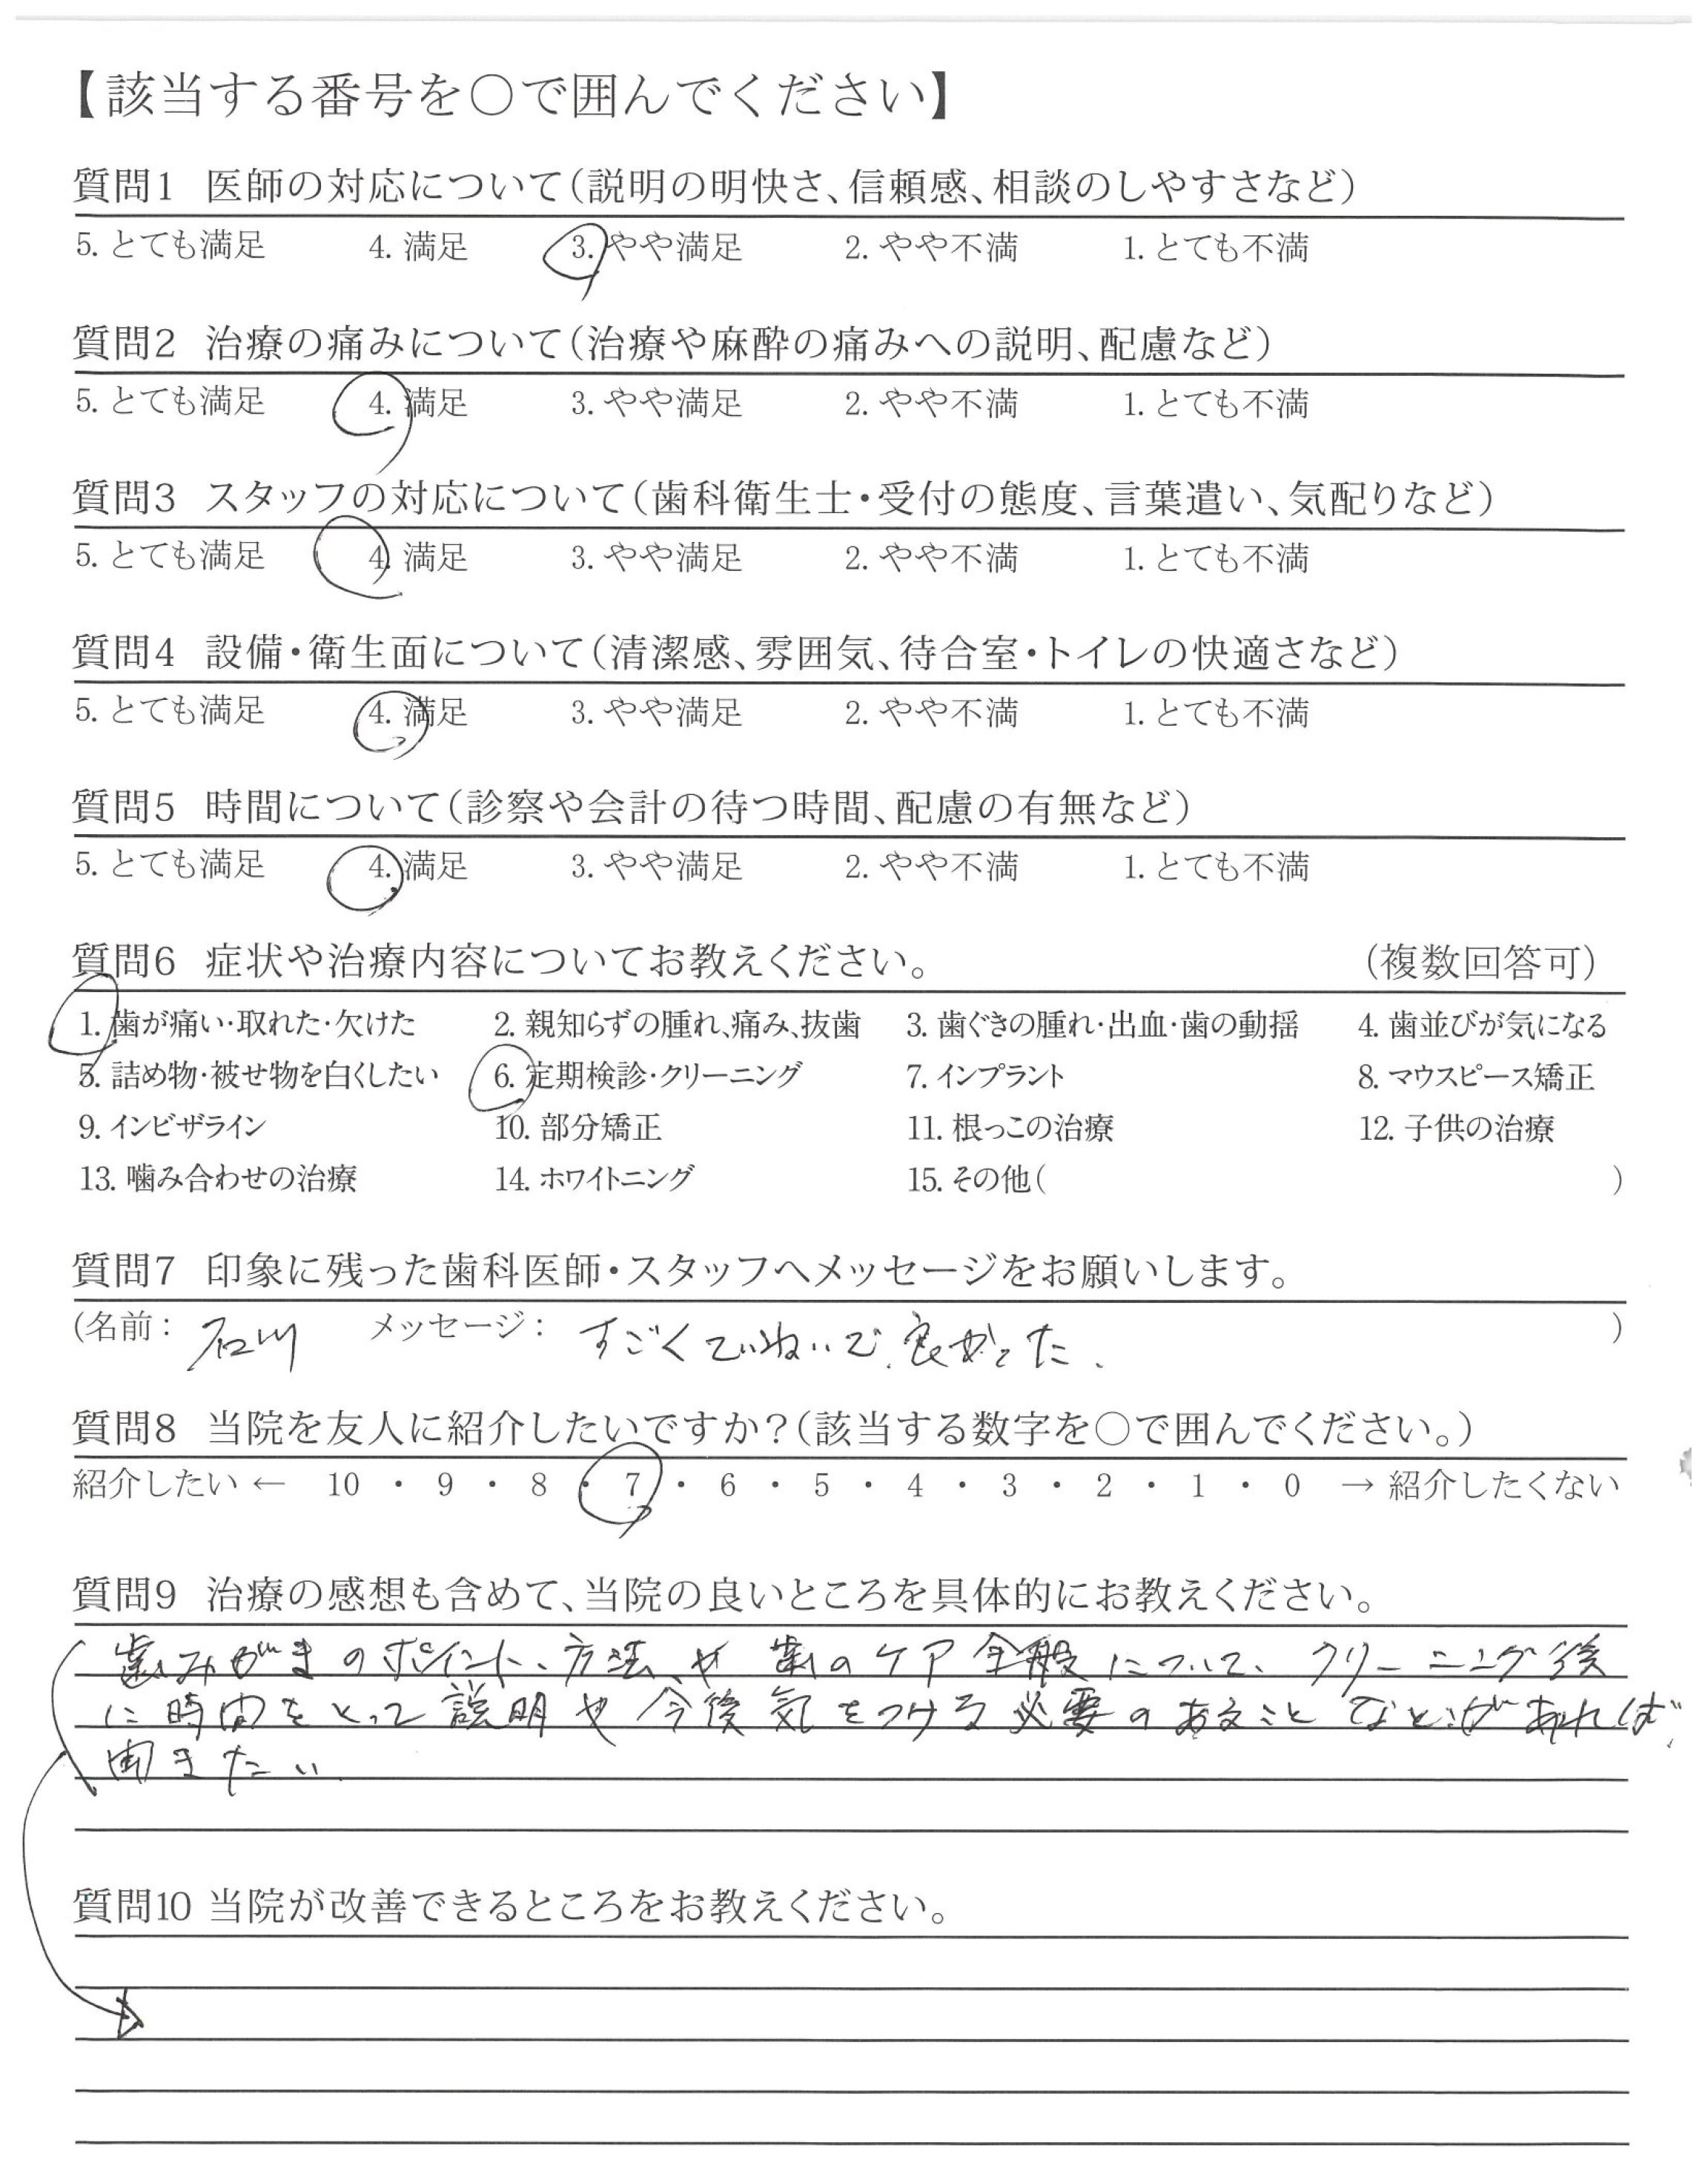 【該当する番号を○で囲んでください】
質問1 医師の対応について（説明の明快さ、信頼感、相談のしやすさなど）
5. とても満足 4. 満足 3. やや満足 2. やや不満 1. とても不満
質問2 治療の痛みについて（治療や麻酔の痛みへの説明、配慮など）
5. とても満足 4. 満足 3. やや満足 2. やや不満 1. とても不満
質問3 スタッフの対応について（歯科衛生士・受付の態度、言葉遣い、気配りなど）
5. とても満足 4. 満足 3. やや満足 2. やや不満 1. とても不満
質問4 設備・衛生面について（清潔感、雰囲気、待合室・トイレの快適さなど）
5. とても満足 4. 満足 3. やや満足 2. やや不満 1. とても不満
質問5 時間について（診察や会計の待つ時間、配慮の有無など）
5. とても満足 4. 満足 3. やや満足 2. やや不満 1. とても不満
質問6 症状や治療内容についてお教えください。 （複数回答可）
1. 歯が痛い・取れた・欠けた 2. 親知らずの腫れ、痛み、抜歯 3. 歯ぐきの腫れ・出血・歯の動揺 4. 歯並びが気になる
5. 詰め物・被せ物を白くしたい 6. 定期検診・クリーニング 7. インプラント 8. マウスピース矯正
9. インビザライン 10. 部分矯正 11. 根っこの治療 12. 子供の治療
13. 噛み合わせの治療 14. ホワイトニング 15. その他（ ）
質問7 印象に残った歯科医師・スタッフへメッセージをお願いします。
（名前： 石川 メッセージ： すごくていねいで、良かった。 ）
質問8 当院を友人に紹介したいですか？（該当する数字を○で囲んでください。）
紹介したい ← 10 ・ 9 ・ 8 ・ 7 ・ 6 ・ 5 ・ 4 ・ 3 ・ 2 ・ 1 ・ 0 → 紹介したくない
質問9 治療の感想も含めて、当院の良いところを具体的にお教えください。
歯みがきのポイント、方法、や 歯のケア全般について、クリーニング後
に時間をとって説明や今後気をつける必要のあることなどがあれば、
聞きたい。
質問10 当院が改善できるところをお教えください。